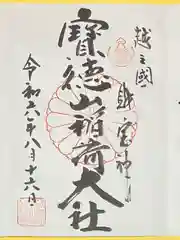 越之國
財宝神
寳徳山稲荷大社
令和六年八月十六日